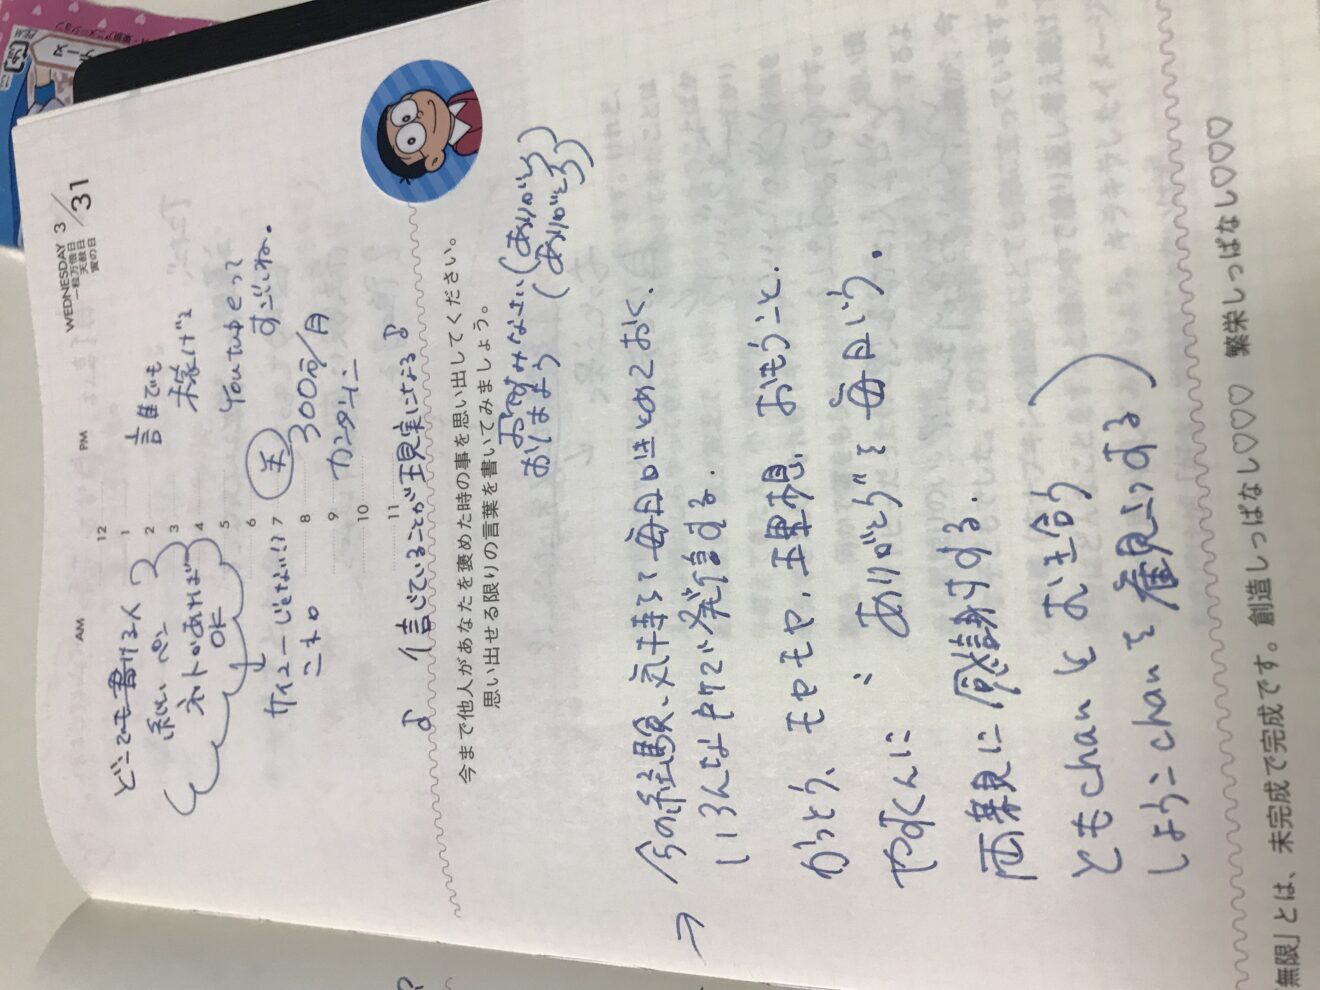 WEDNESDAY 3/31
一粒万倍日
天赦日
寅の日
AM
PM
12
1
2
3
4
5
6
7
8
9
10
11
どこでも書ける人
紙とペン
ネットがあれば
OK
サイコーじゃない!?
これ
誰でも
稼げる
Youtubeって
すごいね。
300万/月
カンタンに
♪ 信じていることが現実になる♪
今まで他人があなたを褒めた時の事を思い出してください。
思い出せる限りの言葉を書いてみましょう。
おやすみなさい(ありがとう)
おはよう (ありがとう)
→ 今の経験、気持ちを毎日まとめておく.
いろんな中で発信する.
かっとう、モヤモヤ、理想、おもうこと.
やすくんに "ありがとう"を毎日いう.
両親に感謝する.
ともchanとむき合う
しょうこchanを
「無限」とは、未完成で完成です。創造しっぱなし♡♡♡ 繁栄しっぱなし♡♡♡